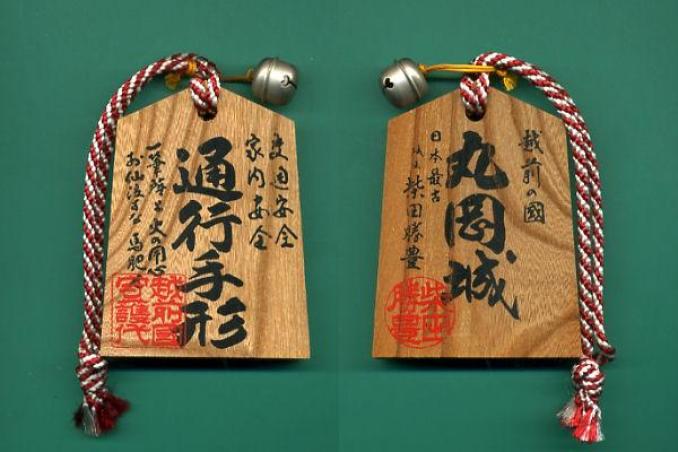 交通安全
家内安全
通行手形
一筆啓上火の用心
お仙泣すな馬肥や
越前の國
丸岡城
日本最古
城主柴田勝豊
柴田勝豊